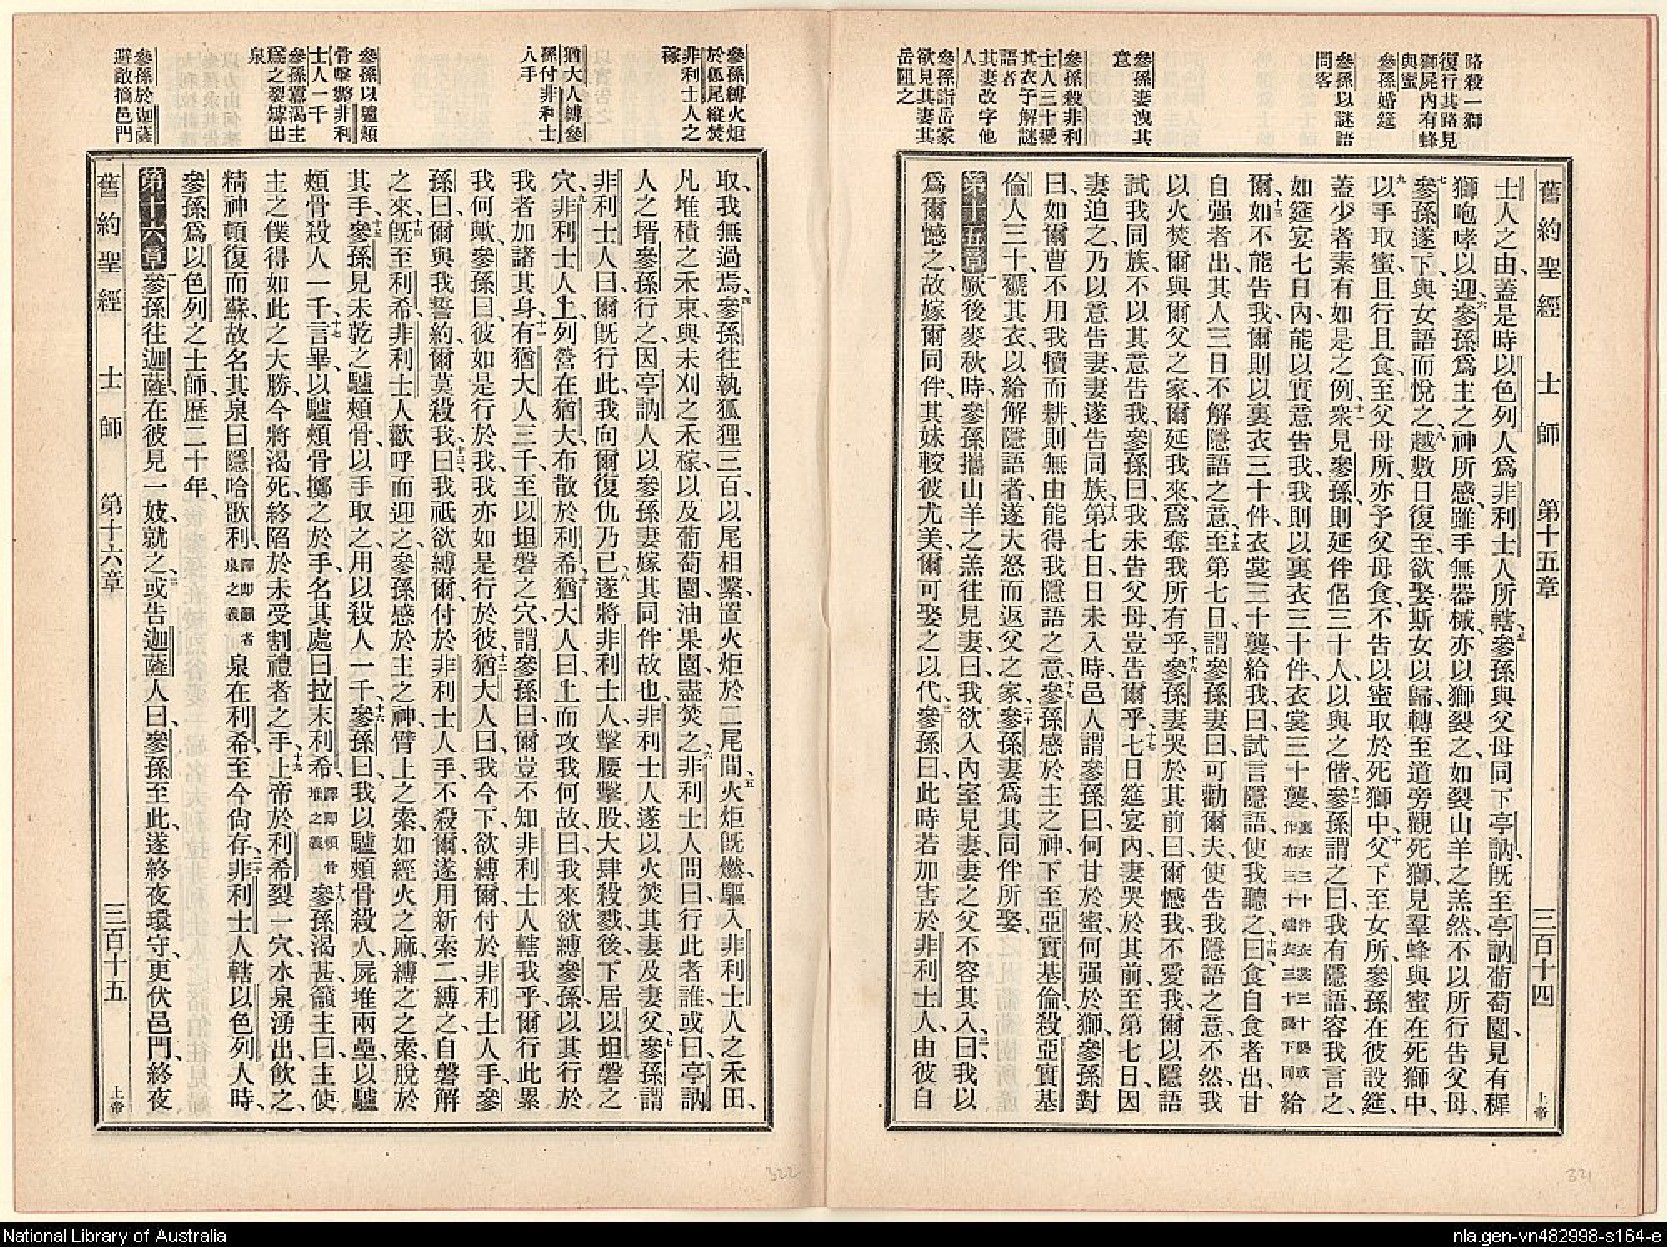 路殺一獅
復行其路見
獅屍內有蜂
與蜜
參孫婚筵
參孫以謎語
問客
參孫妻洩其
意
參孫殺非利
士人三十褫
其衣予解謎
語者
其妻改字他
人
參孫詣岳家
欲見其妻其
岳阻之
舊約聖經 士師 第十五章 三百十四 上帝
士人之由、蓋是時以色列人爲非利士人所轄、五參孫與父母同下亭訥、旣至亭訥葡萄園、見有穉
獅咆哮以迎、六參孫爲主之神所感、雖手無器械、亦以獅裂之、如裂山羊之羔然、不以所行告父母、
七參孫遂下、與女語而悅之、八越數日復至、欲娶斯女以歸、轉至道旁觀死獅、見羣蜂與蜜在死獅中、
九以手取蜜、且行且食、至父母所、亦予父母食、不告以蜜取於死獅中、十父下至女所、參孫在彼設筵、
蓋少者素有如是之例、十一衆見參孫、則延伴侶三十人、以與之偕、十二參孫謂之曰、我有隱語、容我言之、
如筵宴七日內、能以實意告我、我則以裏衣三十件、衣裳三十襲、裏衣三十件衣裳三十襲或作布三十襤衣三十襲下同給
爾、十三如不能告我、爾則以裏衣三十件、衣裳三十襲給我、曰、試言隱語、使我聽之、十四曰、食自食者出、甘
自强者出、其人三日不解隱語之意、十五至第七日、謂參孫妻曰、可勸爾夫、使告我隱語之意、不然、我
以火焚爾與爾父之家、爾延我來、爲奪我所有乎、十六參孫妻哭於其前曰、爾憾我、不愛我、爾以隱語
試我同族、不以其意告我、參孫曰、我未告父母、豈告爾乎、十七七日筵宴內、妻哭於其前、至第七日、因
妻迫之、乃以意告妻、妻遂告同族、十八第七日、日未入時、邑人謂參孫曰、何甘於蜜、何强於獅、參孫對
曰、如爾曹不用我犢而耕、則無由能得我隱語之意、十九參孫感於主之神、下至亞實基倫、殺亞實基
倫人三十、褫其衣、以給解隱語者、遂大怒而返父之家、二十參孫妻爲其同伴所娶、
第十五章 厥後麥秋時、參孫攜山羊之羔、往見妻、曰、我欲入內室見妻、妻之父不容其入、二曰、我以
爲爾憾之、故嫁爾同伴、其妹較彼尤美、爾可娶之以代、三參孫曰、此時若加害於非利士人、由彼自
參孫縛火炬
於狐尾縱焚
非利士人之
稼
猶大人縛參
孫付非利士
人手
參孫以驢頰
骨擊斃非利
士人一千
參孫甚渴主
爲之裂巖出
泉
參孫於迦薩
避敵摘邑門
取、我無過焉、四參孫往執狐狸三百、以尾相繫、置火炬於二尾間、五火炬旣燃、驅入非利士人之禾田、
凡堆積之禾束、與未刈之禾稼、以及葡萄園油果園、盡焚之、六非利士人問曰、行此者誰、或曰、亭訥
人之壻參孫行之、因亭訥人以參孫妻嫁其同伴故也、非利士人遂以火焚其妻及妻父、七參孫謂
非利士人曰、爾旣行此、我向爾復仇乃已、八遂將非利士人、擊腰擊股、大肆殺戮、後下居以坦磐之
穴、九非利士人上、列營在猶大、布散於利希、十猶大人曰、上而攻我何故、曰、我來欲縛參孫、以其行於
我者加諸其身、十一有猶大人三千、至以坦磐之穴、謂參孫曰、爾豈不知非利士人轄我乎、爾行此累
我何歟、參孫曰、彼如是行於我、我亦如是行於彼、十二猶大人曰、我今下欲縛爾、付於非利士人手、參
孫曰、爾與我誓約、爾莫殺我、十三曰、我祇欲縛爾付於非利士人手、不殺爾、遂用新索二縛之、自磐解
之來、十四旣至利希、非利士人歡呼而迎之、參孫感於主之神、臂上之索、如經火之麻、縛之之索、脫於
其手、十五參孫見未乾之驢頰骨、以手取之、用以殺人一千、十六參孫曰、我以驢頰骨殺人、屍堆兩壘、以驢
頰骨殺人一千、十七言畢、以驢頰骨擲之於手、名其處曰拉末利希、譯卽頰骨堆之義十八參孫渴甚、籲主曰、主使
主之僕得如此之大勝、今將渴死、終陷於未受割禮者之手、十九上帝於利希裂一穴、水泉湧出、飲之、
精神頓復而蘇、故名其泉曰隱哈歌利、譯卽籲者泉之義泉在利希、至今尙存、二十非利士人轄以色列人時、
參孫爲以色列之士師、歷二十年、
第十六章 參孫往迦薩、在彼見一妓、就之、二或告迦薩人曰、參孫至此、遂終夜環守、更伏邑門、終夜
舊約聖經 士師 第十六章 三百十五 上帝
322
321
National Library of Australia
nla.gen-vn482998-s164-e